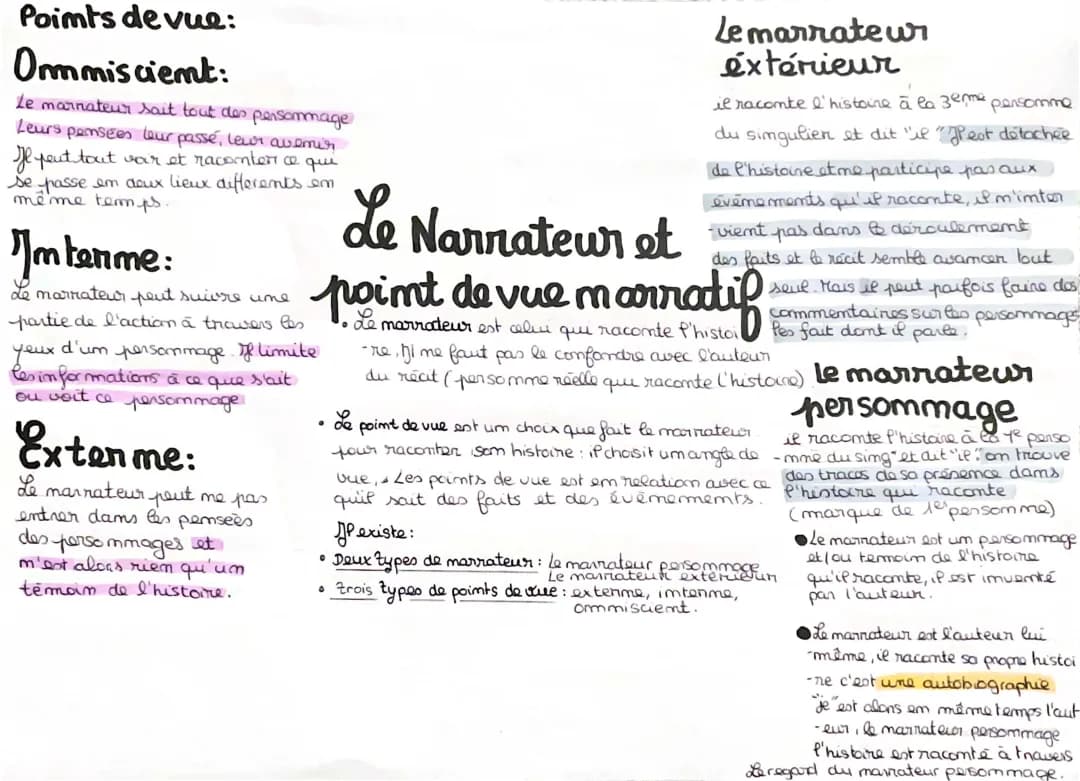 Points de vue:
Ommisciemt:
Le narrateur sait tout des personnage
Leurs pensées leur passé, leur avenir
Il peut tout voir et raconter ce qui
se passe en deux lieux differents en
même temps.
Interne:
Le narrateur peut suivre une
partie de l'action à travers les
yeux d'um personnage. Il limite
les informations à ce que s'ait
ou voit ce personnage
Externe:
Le narrateur peut ne pas
entrer dans les pensées
des personnages et
n'est alors rien qu'un
témoin de l'histoire.
Le Narrateur et
point de vue narratif
• Le narrateur est celui qui raconte l'histoi
-re, Il ne faut pas le confondre avec l'auteur
du récit (personne réelle qui raconte l'histoire)
• Le point de vue est un choix que fait le narrateur
pour raconter son histoire : il choisit un angle de
vue, Les points de vue est en relation avec ce
qu'il sait des faits et des évènements.
Il existe:
• Deux types de narrateur : Le narrateur personnage
Le narrateur extérieur
• trois types de points de vue : externe, interne,
ommiscient.
Le narrateur
éxtérieur
il raconte l'histoire à la 3eme personne
du singulier et dit "il" Il est détachée
de l'histoire et ne participe pas aux
évènements qu'il raconte, il n'inter
-vient pas dans le déroulement
des faits et le récit semble avancer tout
seul. Mais il peut parfois faire des
commentaires sur les personnages
les fait dont il parle.
le narrateur
personnage
il raconte l'histoire à la 1e perso
-nne du sing" et dit "il" on trouve
des traces de sa présence dans
l'histoire qui raconte
(marque de 1e personne)
● Le narrateur est un personnage
et/ou temoin de l'histoire
qu'il raconte, il est inventé
par l'auteur.
● Le narrateur est l'auteur lui
-même, il raconte sa propre histoi
-re c'est une autobiographie
"je" est alors en même temps l'aut
-eur, le narrateur personnage
l'histoire est raconté à travers
Le regard du narrateur personnage.